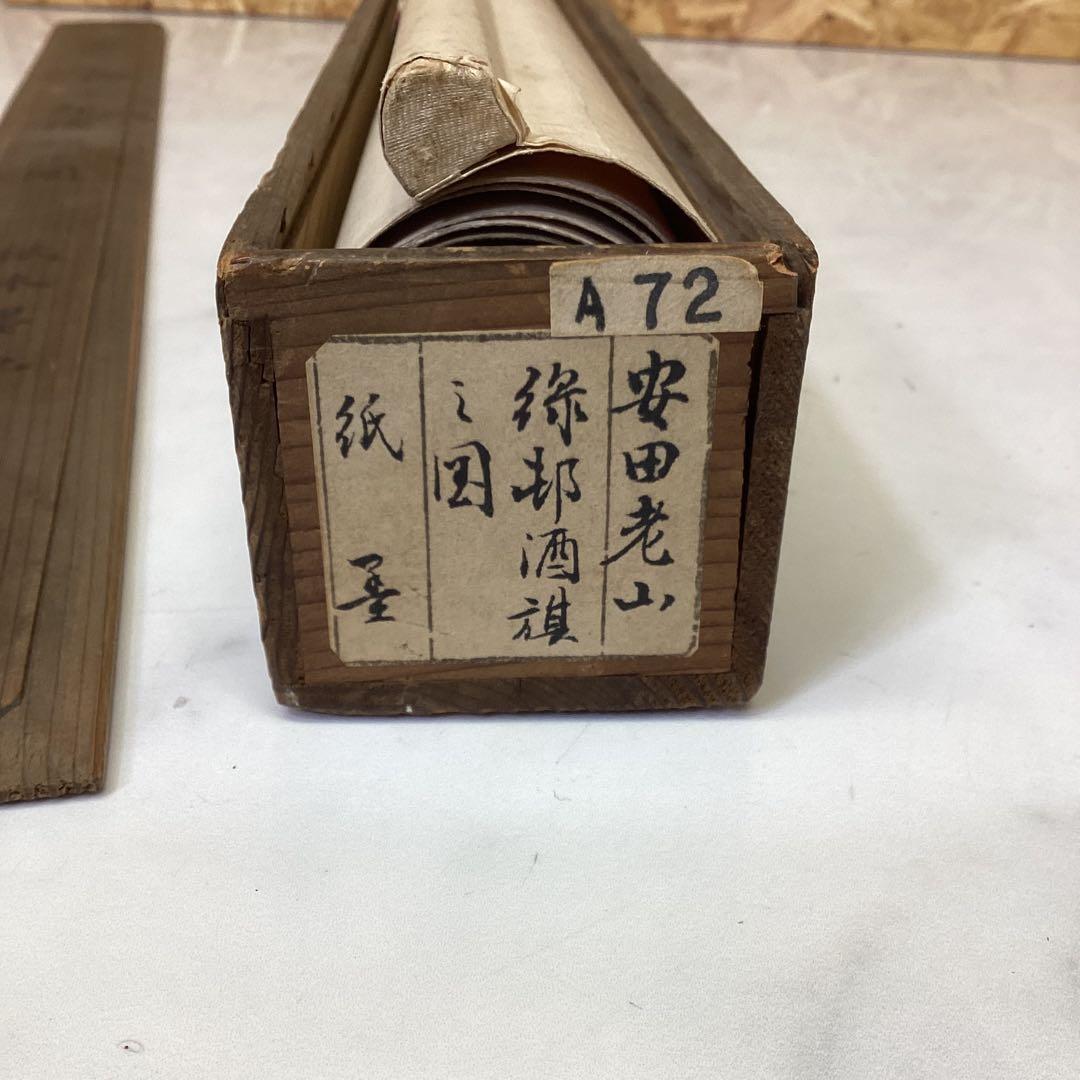 A 72
安田老山
綠邨酒旗
之図
紙 墨